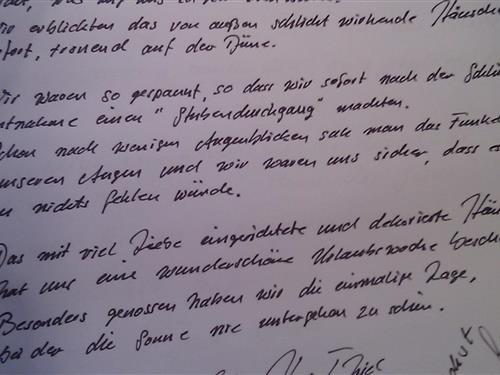 Wir erblickten das von außen schlicht wirkende Häuschen
sofort, tronend auf der Düne.
Wir waren so gespannt, so dass wir sofort nach der Schlü
entnahme einen "Stubendurchgang" machten.
Schon nach wenigen Augenblicken sah man das Funkel
unseren Augen und wir waren uns sicher, dass es
an nichts fehlen würde.
Das mit viel Liebe eingerichtete und dekorierte Häu
hat uns eine wunderschöne Urlaubswoche besche
Besonders genossen haben wir die einmalige Lage,
bei der die Sonne nie untergehen zu schien.